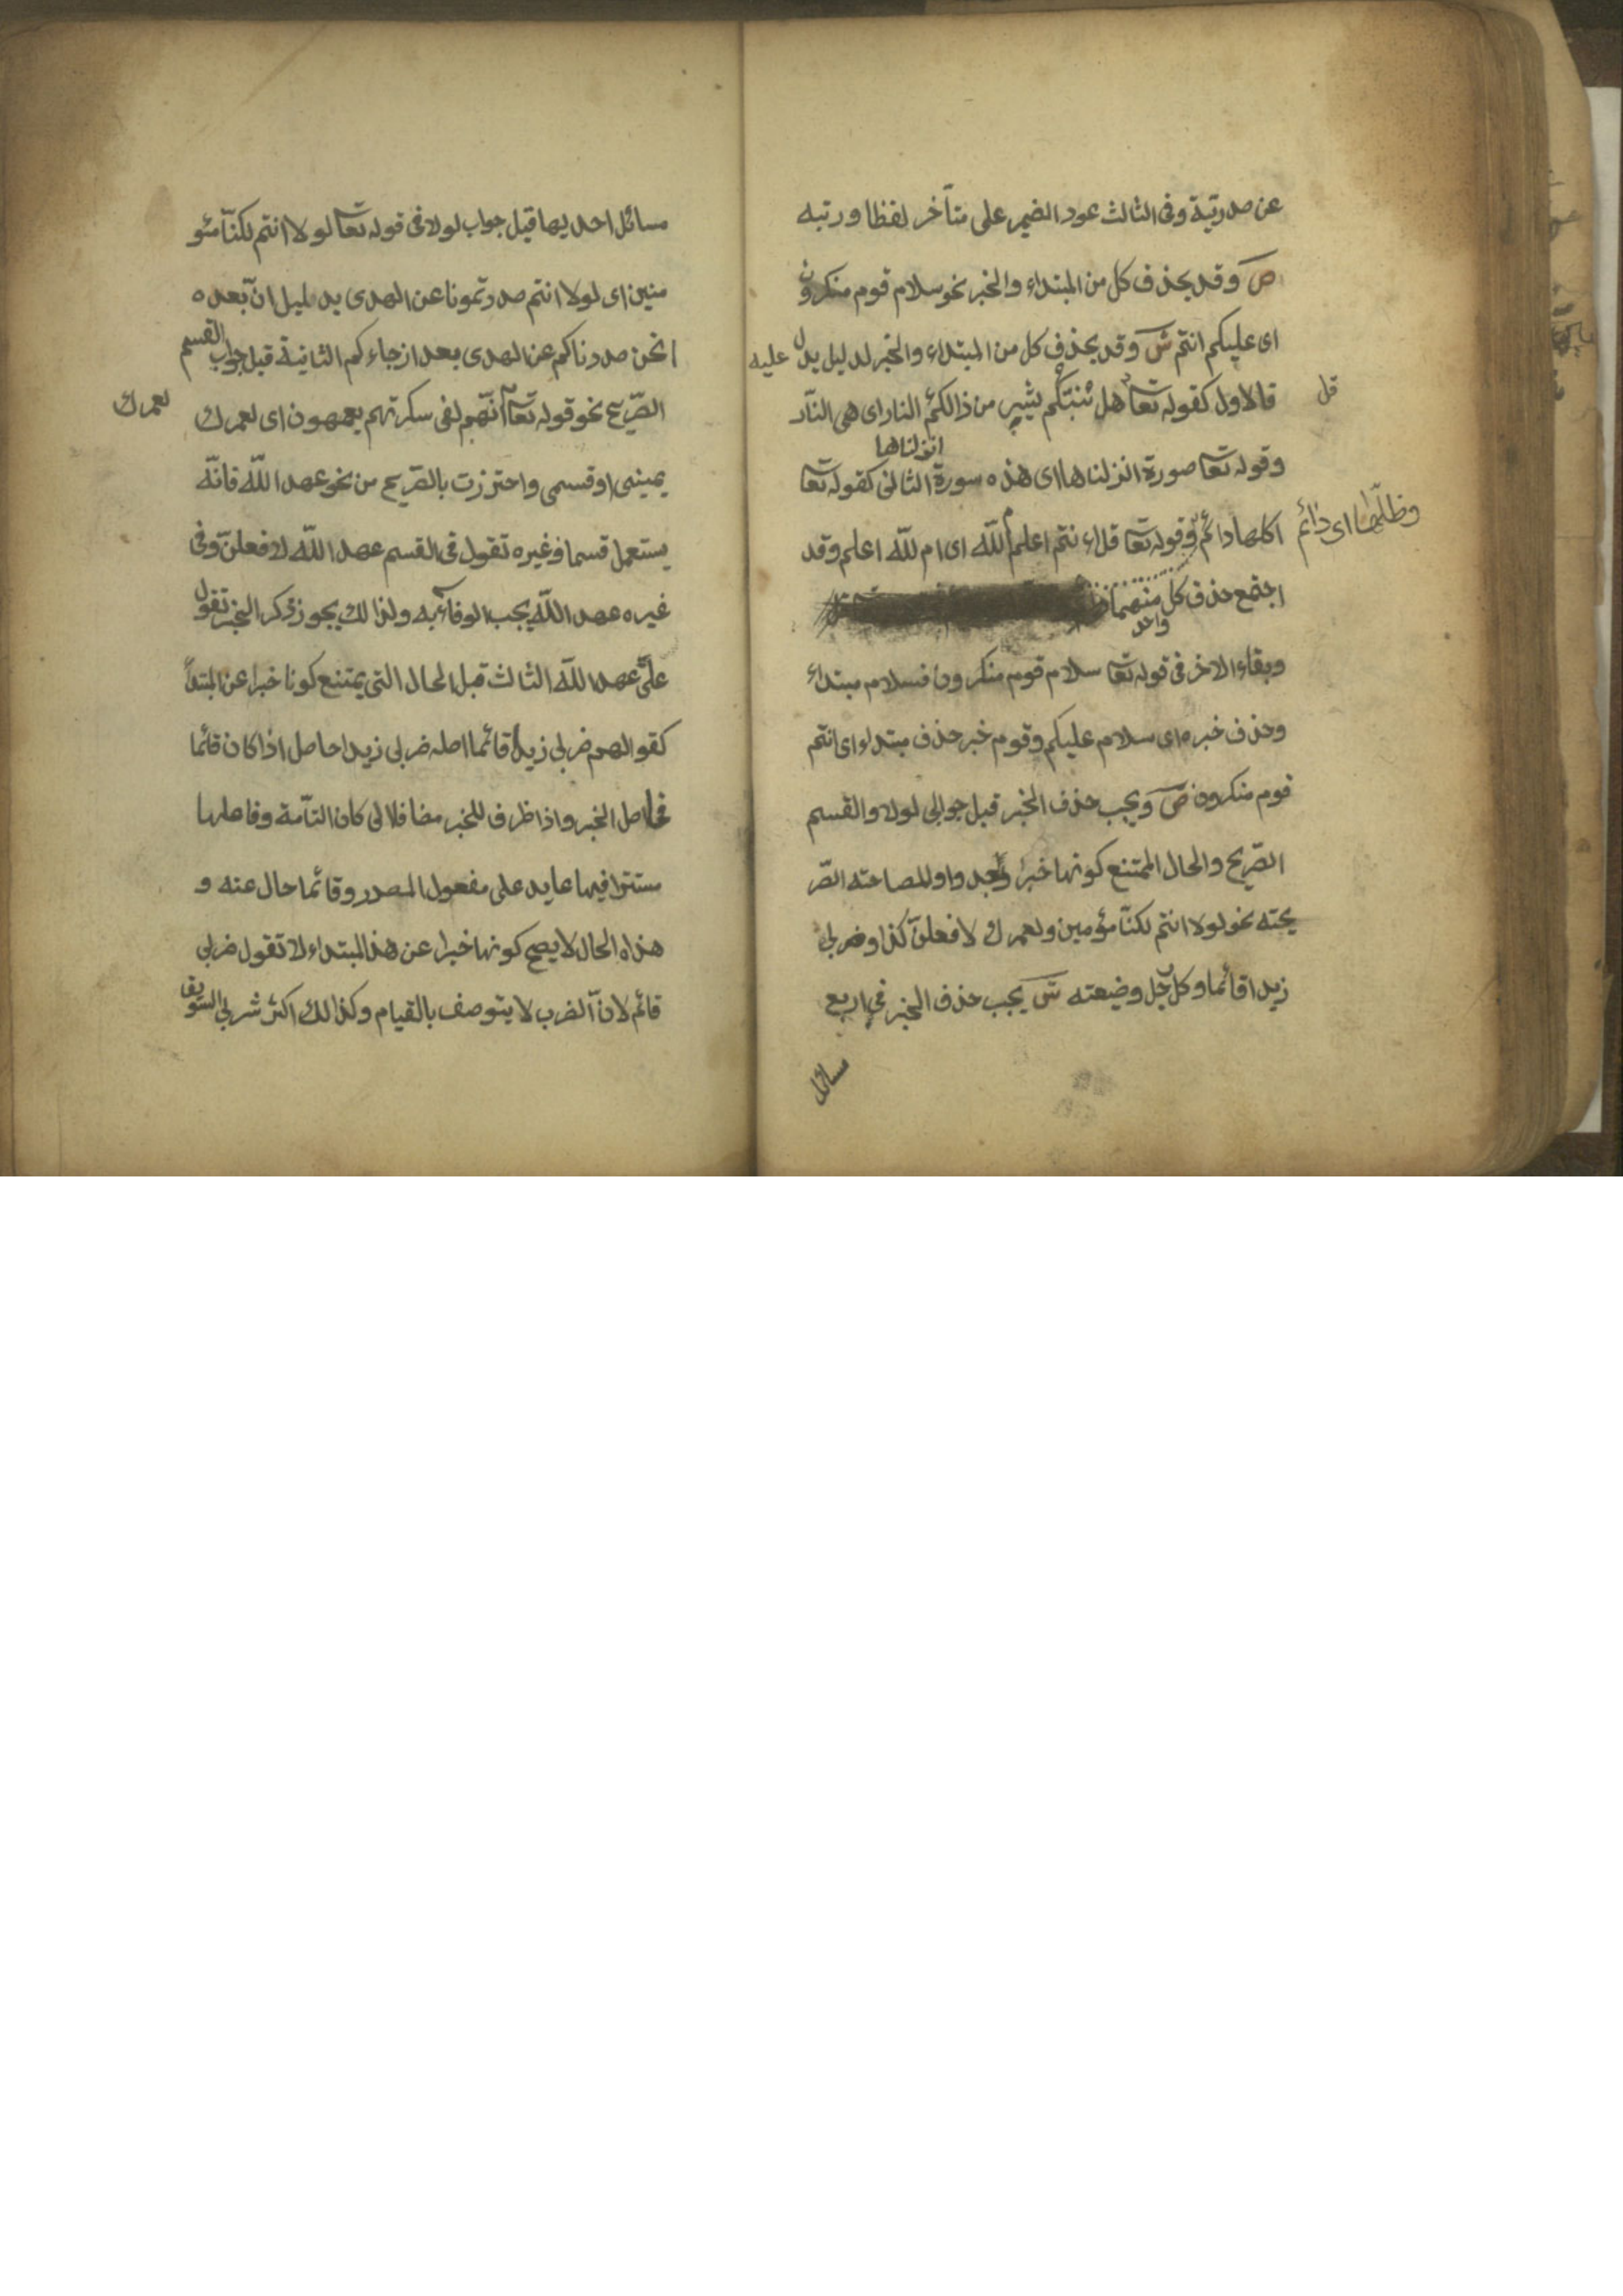 عن صدرتية وفى الثالث عود الضمير على متأخر لفظا ورتبه
ص وقد يحذف كل من المبتداء والخبر نحو سلام قوم منكرون
اى عليكم انتم ش وقد يحذف كل من المبتداء والخبر لدليل يدل عليه
قل
فالاول كقوله تعا هل ننبئكم بشر من ذالكم النار اى هى النار
انزلناها
وقوله تعا صورة انزلناها اى هذه سورة الثانى كقوله تعا
اكلها دائم وظلها اى دائم وقوله تعا قل ءانتم اعلم ام اللّه اى ام للّه اعلم وقد
اجتمع حذف كل منهما
واحد
وبقاء الاخر فى قوله تعا سلام قوم منكرون فسلام مبتداء
وحذف خبره اى سلام عليكم وقوم خبر حذف مبتداء اى انتم
قوم منكرون ص ويجب حذف الخبر قبل جوابى لولا والقسم
الصّريح والحال الممتنع كونها خبرا وبعد واو للمصاحته الصّر
يحته نحو لولا انتم لكنّا مؤمين ولعمرك لافعلنّ كذا وضربى
زيدا قائما وكل رجل وضيعته ش يجب حذف الخبر فى اربع
مسائل
مسائل احديها قبل جواب لولا فى قوله تعا لولا انتم لكنّا مئو
منين اى لولا انتم صدرتمونا عن الهدى بدليل انّ بعده
انحن صدرناكم عن الهدى بعد ازجاءكم الثانية قبل جواب القسم
الصّريح نحو قوله تعا لعمرك انّهم لفى سكرتهم يعمهون اى لعمرك
يمينى او قسمى واحترزت بالصّريح من نحو عهد اللّه فانّه
يستعمل قسما وغيره تقول فى القسم عهد اللّه لافعلنّ وفى
غيره عهد اللّه يجب الوفاء به ولذالك يجوز ذكر الخبر تقول
علىّ عهد اللّه الثالث قبل الحال التى يمتنع كونا خبرا عن المبتدأ
كقوالهم ضربى زيدا قائما اصله ضربى زيدا حاصل اذا كان قائما
فحاصل الخبر واذا ظرف للخبر مضافلا لى كان التآمة وفاعلها
مستترا فيها عايد على مفعول المصدر وقائما حال عنه و
هذاه الحال لايصح كونها خبرا عن هذ المبتداء لا تقول ضربى
قائم لانّ الضرب لا يتوصف بالقيام وكذالك اكثر شربى السّويق